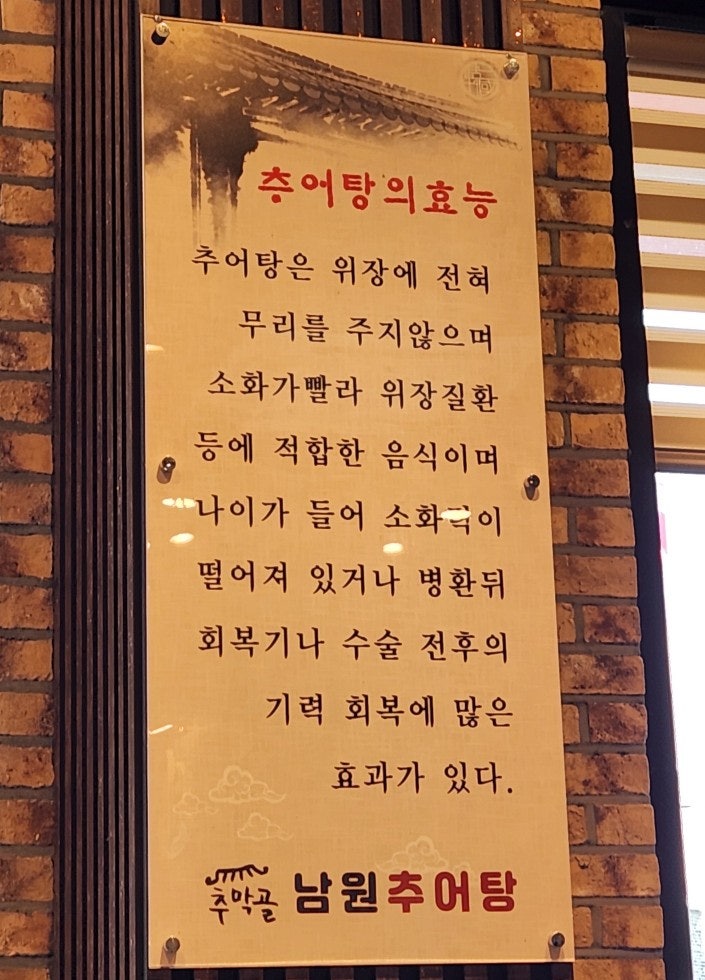 추어탕의효능
추어탕은 위장에 전혀
무리를 주지않으며
소화가빨라 위장질환
등에 적합한 음식이며
나이가 들어 소화력이
떨어져 있거나 병환뒤
회복기나 수술 전후의
기력 회복에 많은
효과가 있다.
추막골 남원추어탕